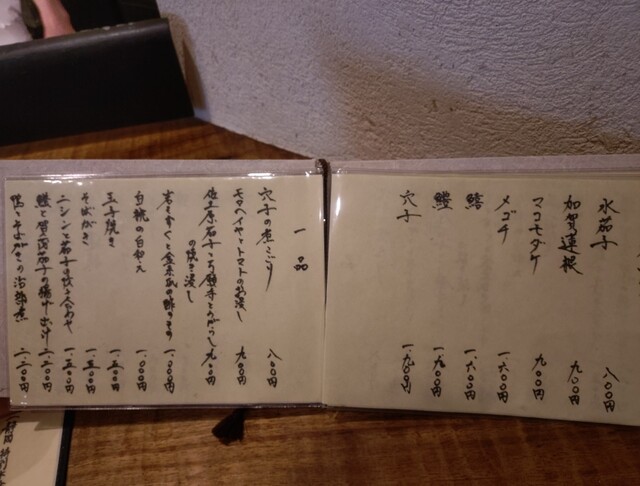 水茄子 八〇〇円
加賀蓮根 九〇〇円
マコモダケ 九〇〇円
メゴチ 一、六〇〇円
鱚 一、六〇〇円
鰹 一、九〇〇円
穴子 一、九〇〇円
一品
穴子の煮こごり 八〇〇円
モロヘイヤとトマトのお浸し 九〇〇円
万願寺とうがらし
の焼き浸し 九〇〇円
岩もずくと金糸瓜の酢のもの 一、〇〇〇円
白桃の白和え 一、〇〇〇円
玉子焼き 一、三〇〇円
そばがき 一、五〇〇円
ニシンと茄子の炊き合わせ 一、五〇〇円
鱧と賀茂茄子の揚げ出汁 二、二〇〇円
鴨とそばがきの治部煮 二、二〇〇円